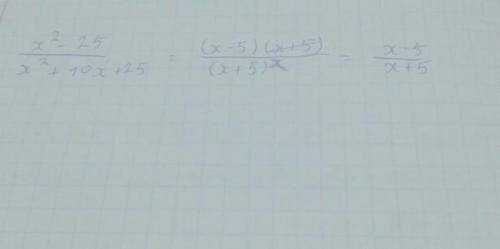 (x² - 25)/(x² + 10x + 25) = ((x-5)(x+5))/((x+5)²) = (x-5)/(x+5)